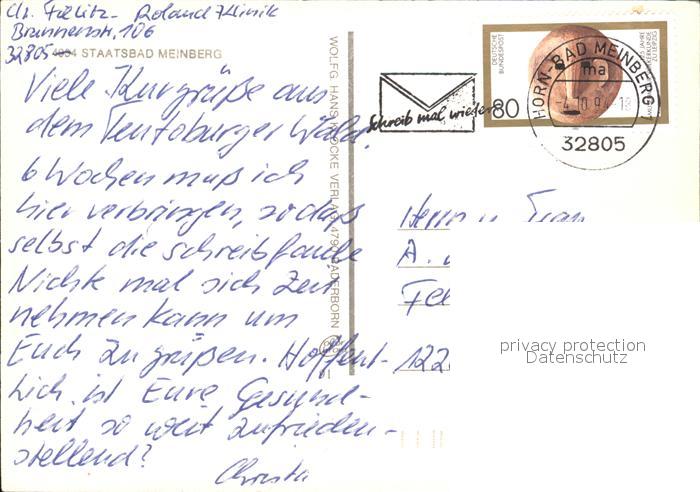 Ch. Fielitz - Roland Klinik
Brunnenstr. 106
32805 4934 STAATSBAD MEINBERG
Viele Kurgrüße aus
dem Teutoburger Wald.
6 Wochen muß ich
hier verbringen, so daß
selbst die schreibfaule
Nichte mal sich Zeit
nehmen kann um
Euch zu grüßen. Hoffent-
lich ist Eure Gesund-
heit so weit zufrieden-
stellend?
Christa
WOLFG. HANS VERLAG, PADERBORN
Schreib mal wieder
DEUTSCHE
BUNDESPOST
80
HORN-BAD MEINBERG 1
ma
-4.10.94-18
32805
Herrn u. Frau
A.
122
privacy protection
Datenschutz